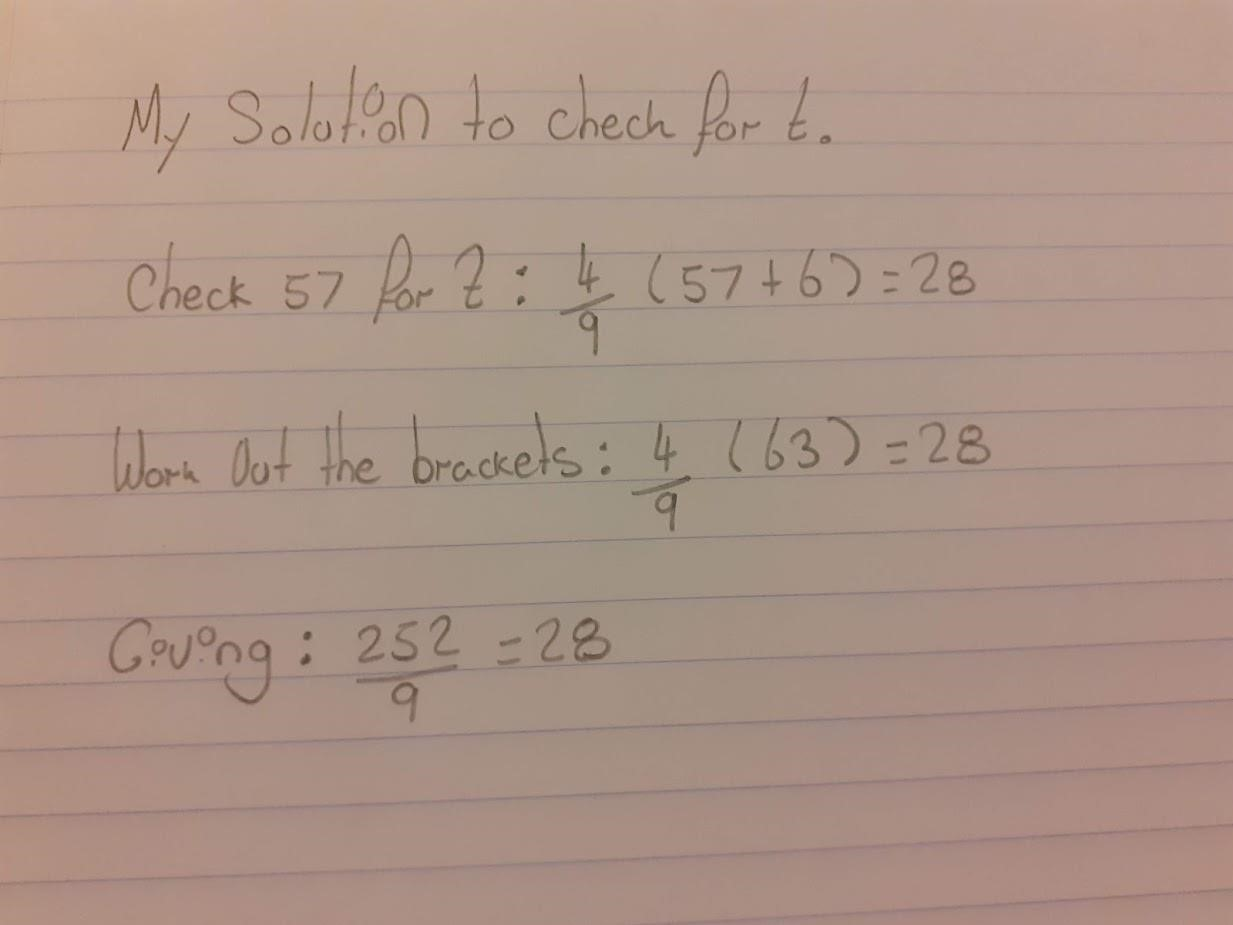 My Solution to check for t.
Check 57 for t: 4/9 (57+6)=28
Work Out the brackets: 4/9 (63)=28
Giving: 252/9 =28